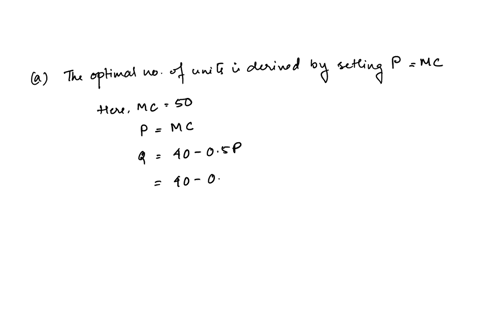 (a) The optimal no. of units is derived by setting P = MC
Here, MC = 50
P = MC
Q = 40 - 0.5P
= 40 - 0.